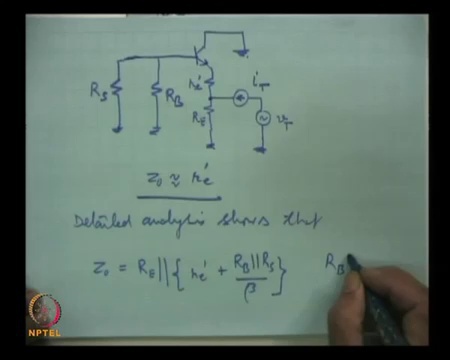 r'e
i_T
R_S
R_B
R_E
v_T
z_o ≈ r'e
Detailed analysis shows that
z_o = R_E || { r'e + R_B || R_S / β } R_B
NPTEL